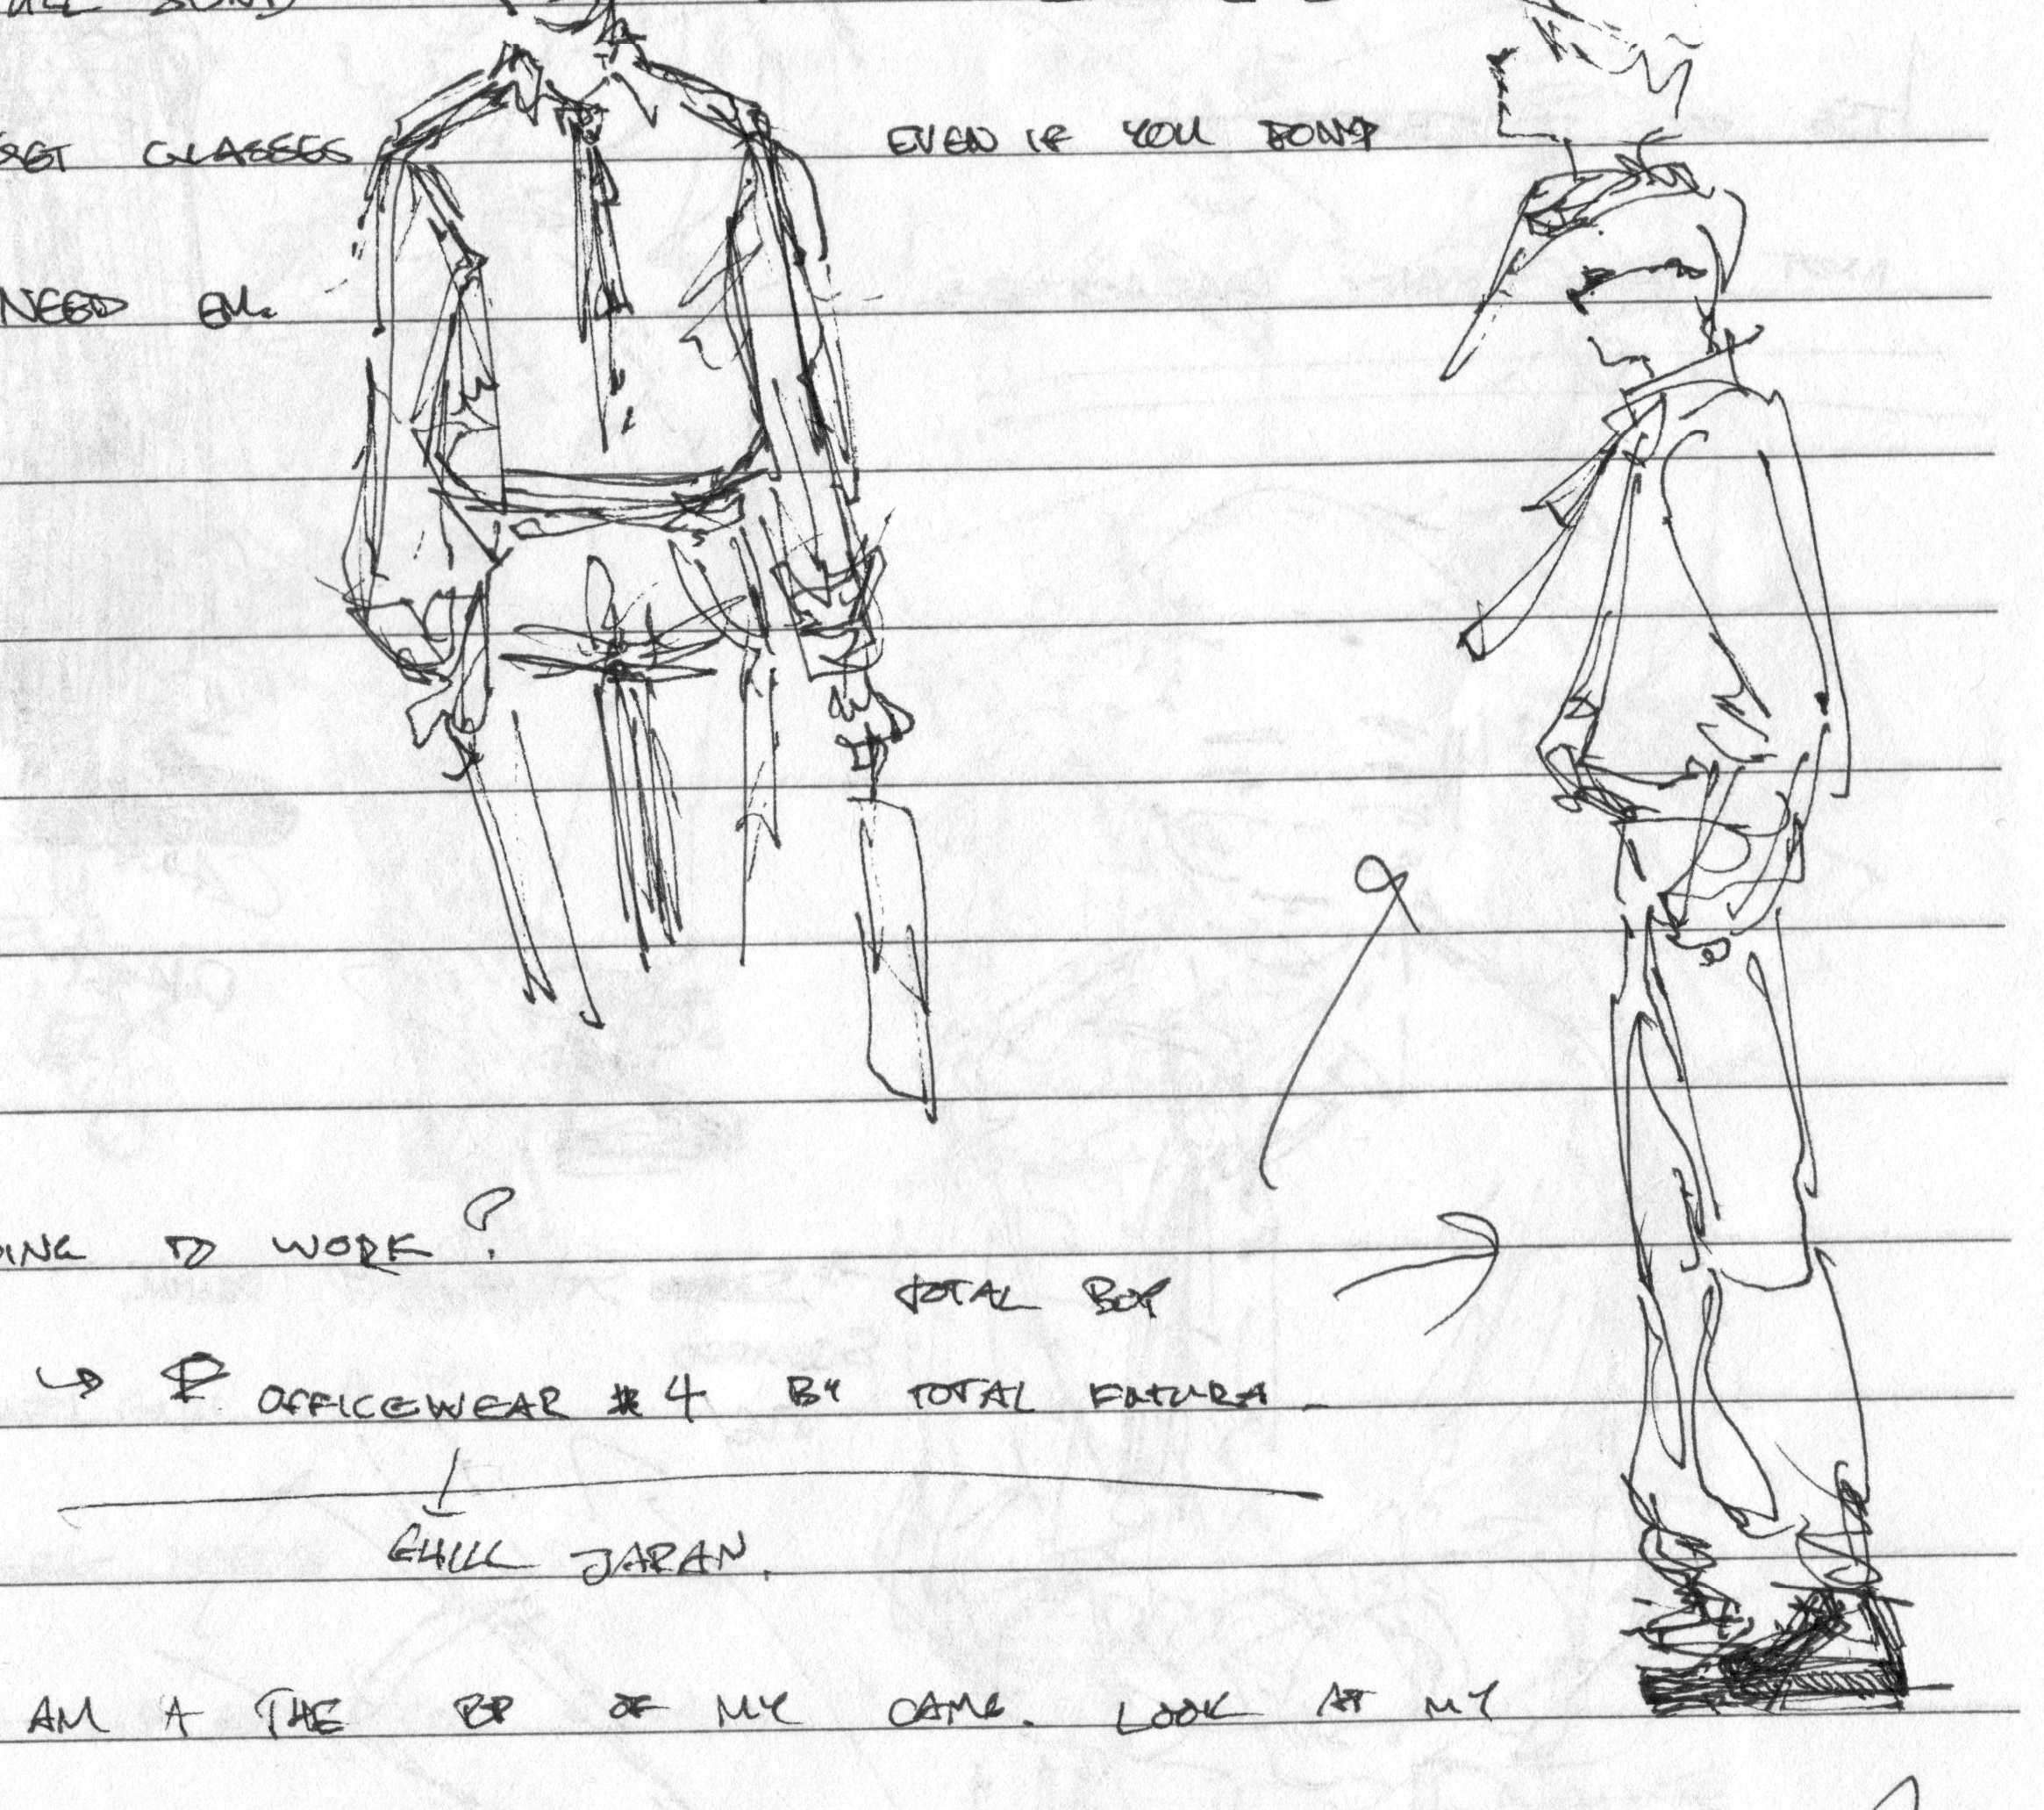 GLASSES EVEN IF YOU DON'T
NEED EM.
TO WORK?
TOTAL BOY
→ OFFICEWEAR #4 BY TOTAL FUTURA
CHILL JAPAN.
AM A THE OF MY GAME. LOOK AT MY